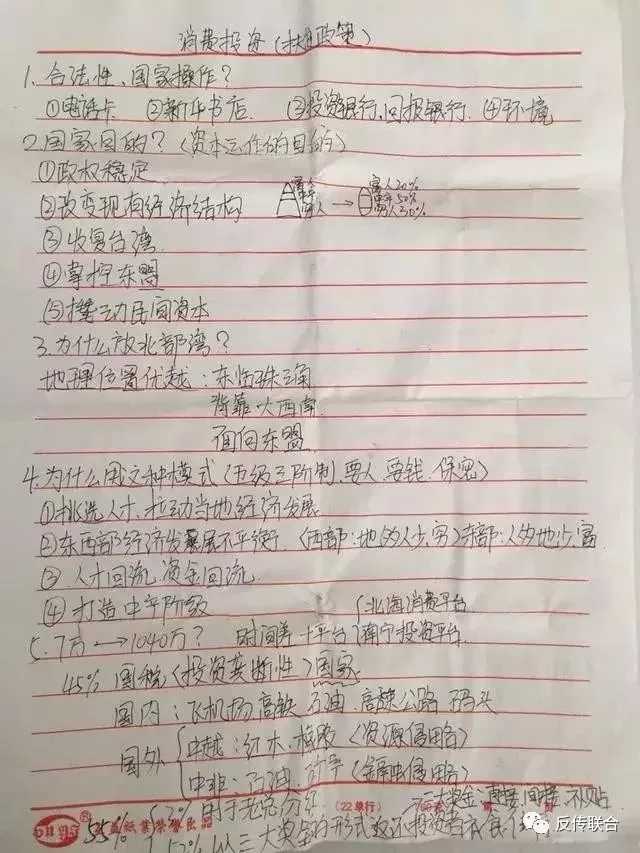 消费投资(扶贫政策)
1. 合法性、国家操作?
①电话卡 ②新华书店 ③投资银行、回报银行 ④环境
2.国家目的?(资本运作的目的)
①政权稳定
②改变现有经济结构 穷人 → 富人20% 50% 穷人30%
③收复台湾
④掌控东盟
⑤撬动民间资本
3.为什么放北部湾?
地理位置优越:东临珠三角
背靠大西南
面向东盟
4.为什么用这种模式(五级三阶制、要人、要钱、保密)
①挑选人才、拉动当地经济发展
②东西部经济发展不平衡(西部:地多人少、穷)东部:人多地少、富
③人才回流、资金回流
④打造中产阶级
5. 7万→1040万? 时间差+平台 北海消费平台
南宁投资平台
45% 国税(投资垄断性)国家
国内:飞机场、高铁、石油、高速公路、码头
国外 中越:红木、橡胶(资源侵略)
中非:石油、(金融侵略)
三大奖金:直接、间接、补贴
(22单行)
55% 用于老总分红
以三大奖金的形式返还投资者
反传联合